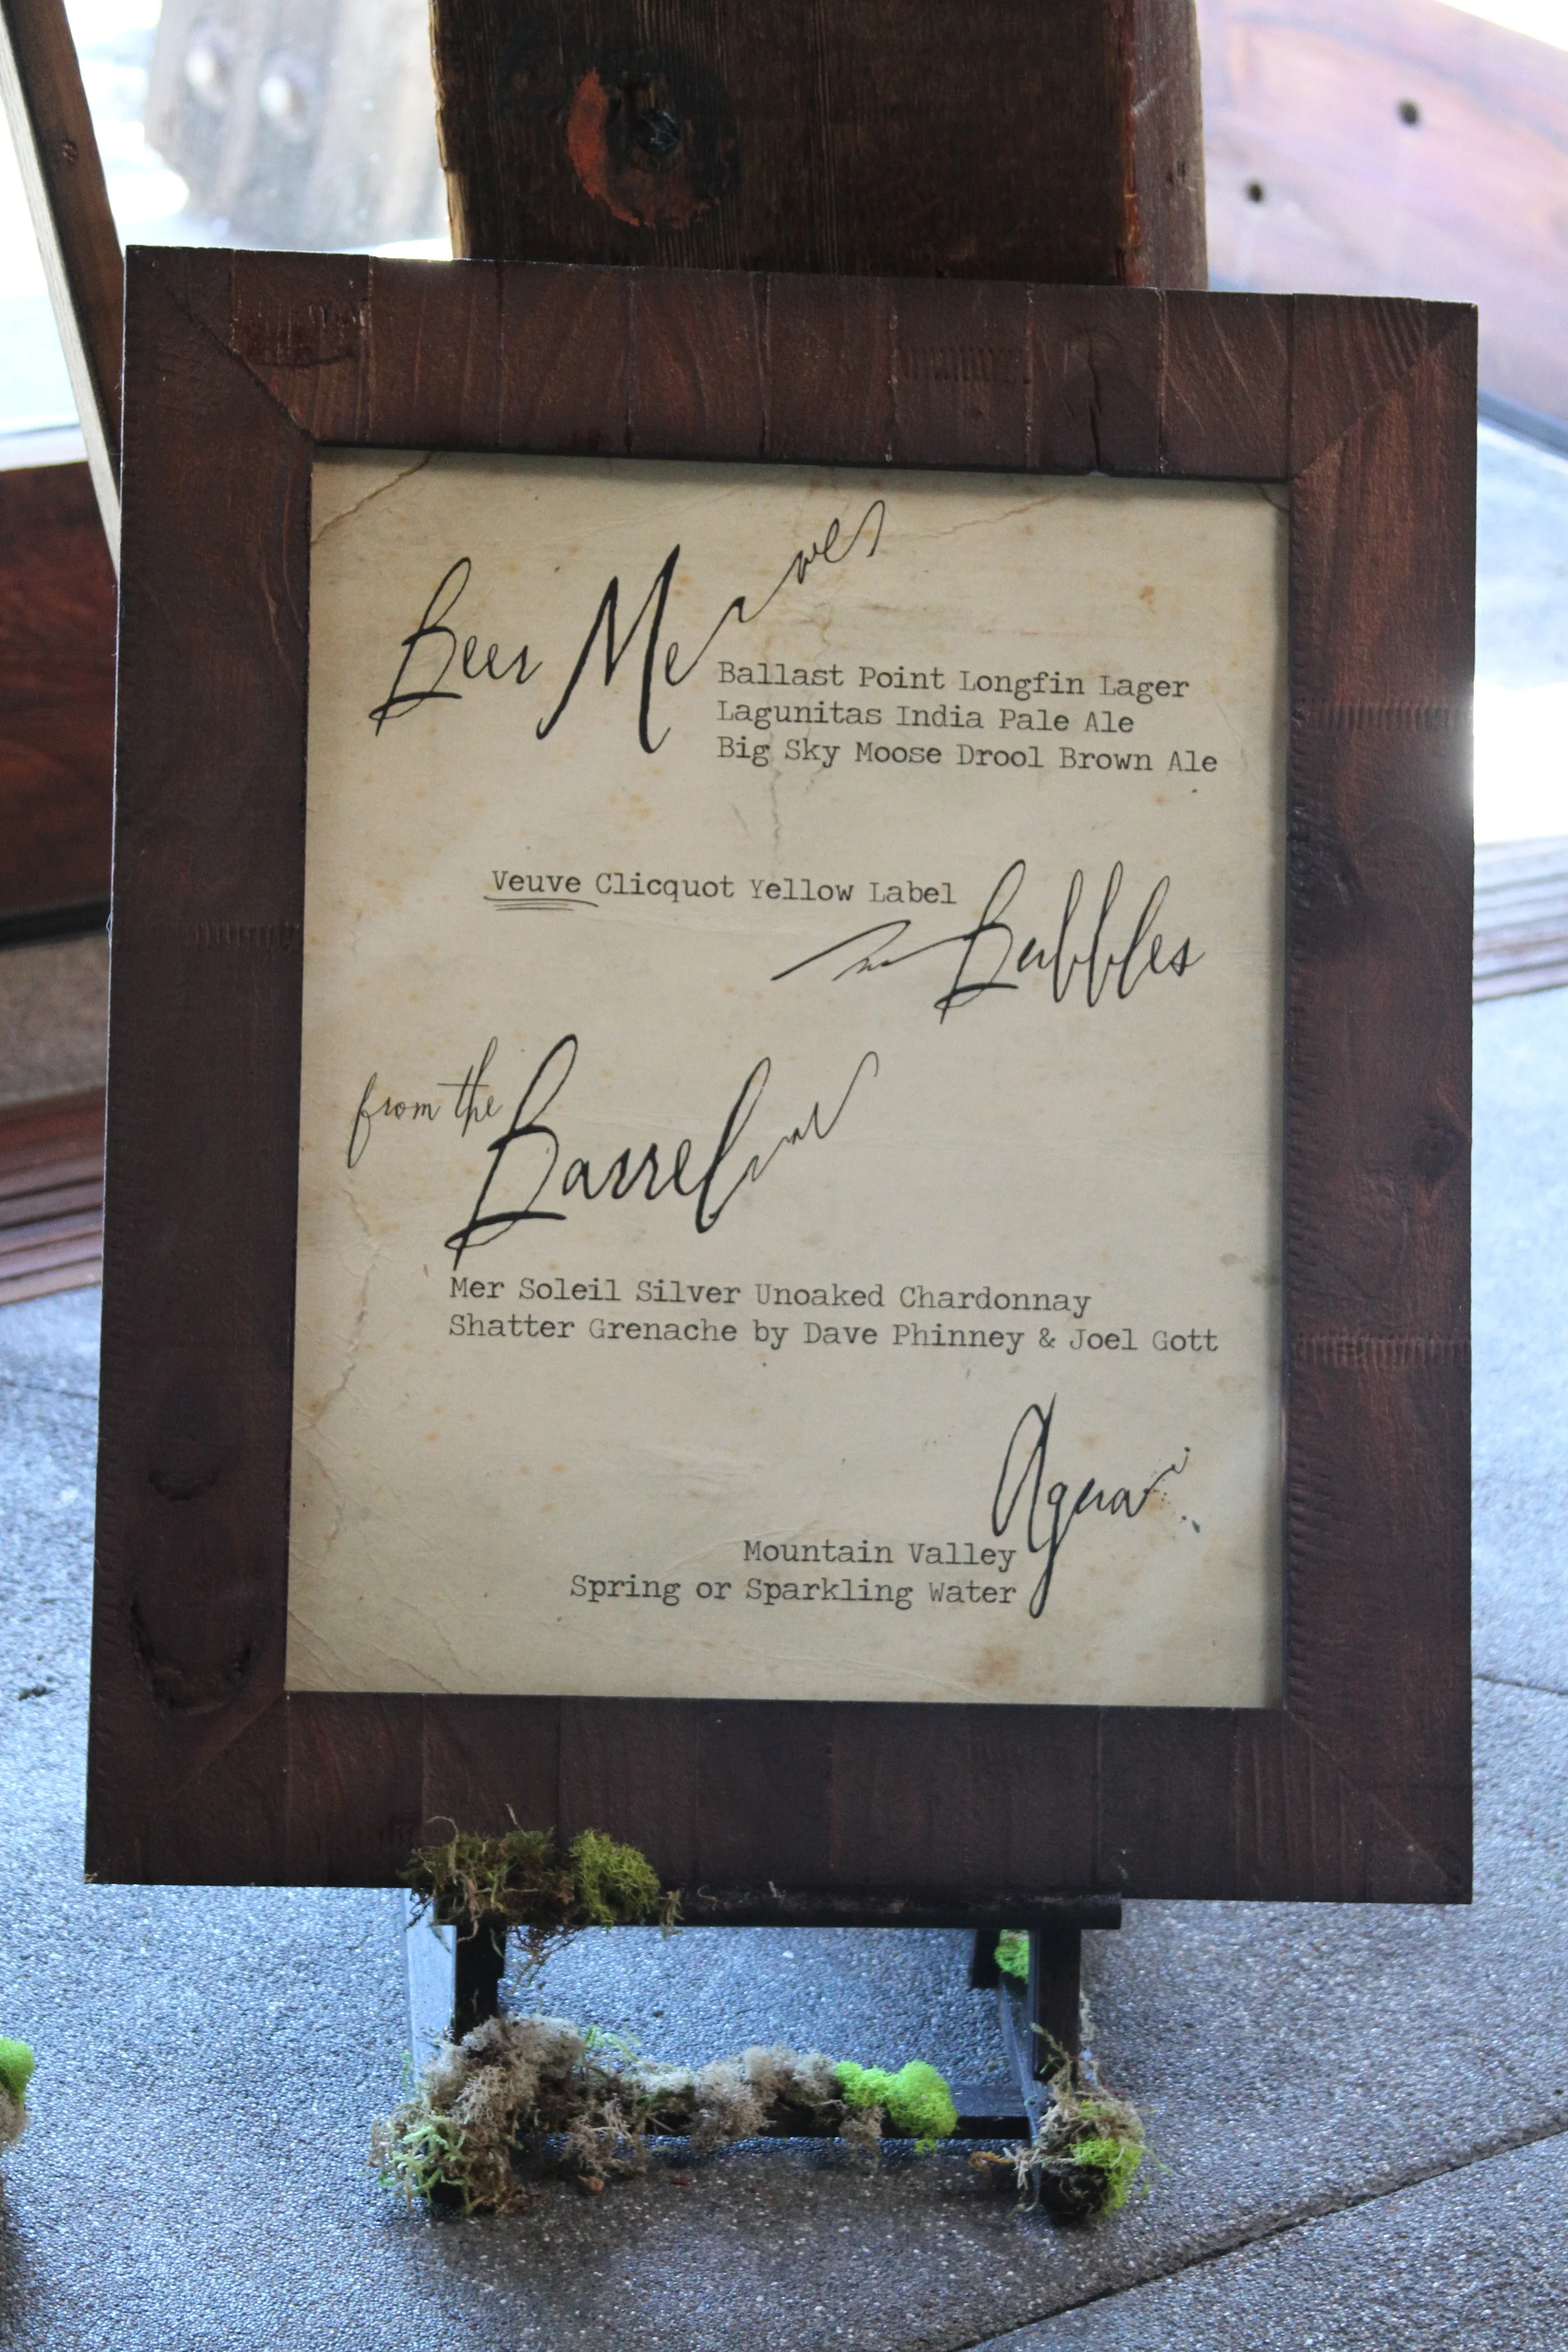 Beer Me
Ballast Point Longfin Lager
Lagunitas India Pale Ale
Big Sky Moose Drool Brown Ale
Veuve Clicquot Yellow Label
Bubbles
from the
Barrel
Mer Soleil Silver Unoaked Chardonnay
Shatter Grenache by Dave Phinney & Joel Gott
Agua
Mountain Valley
Spring or Sparkling Water